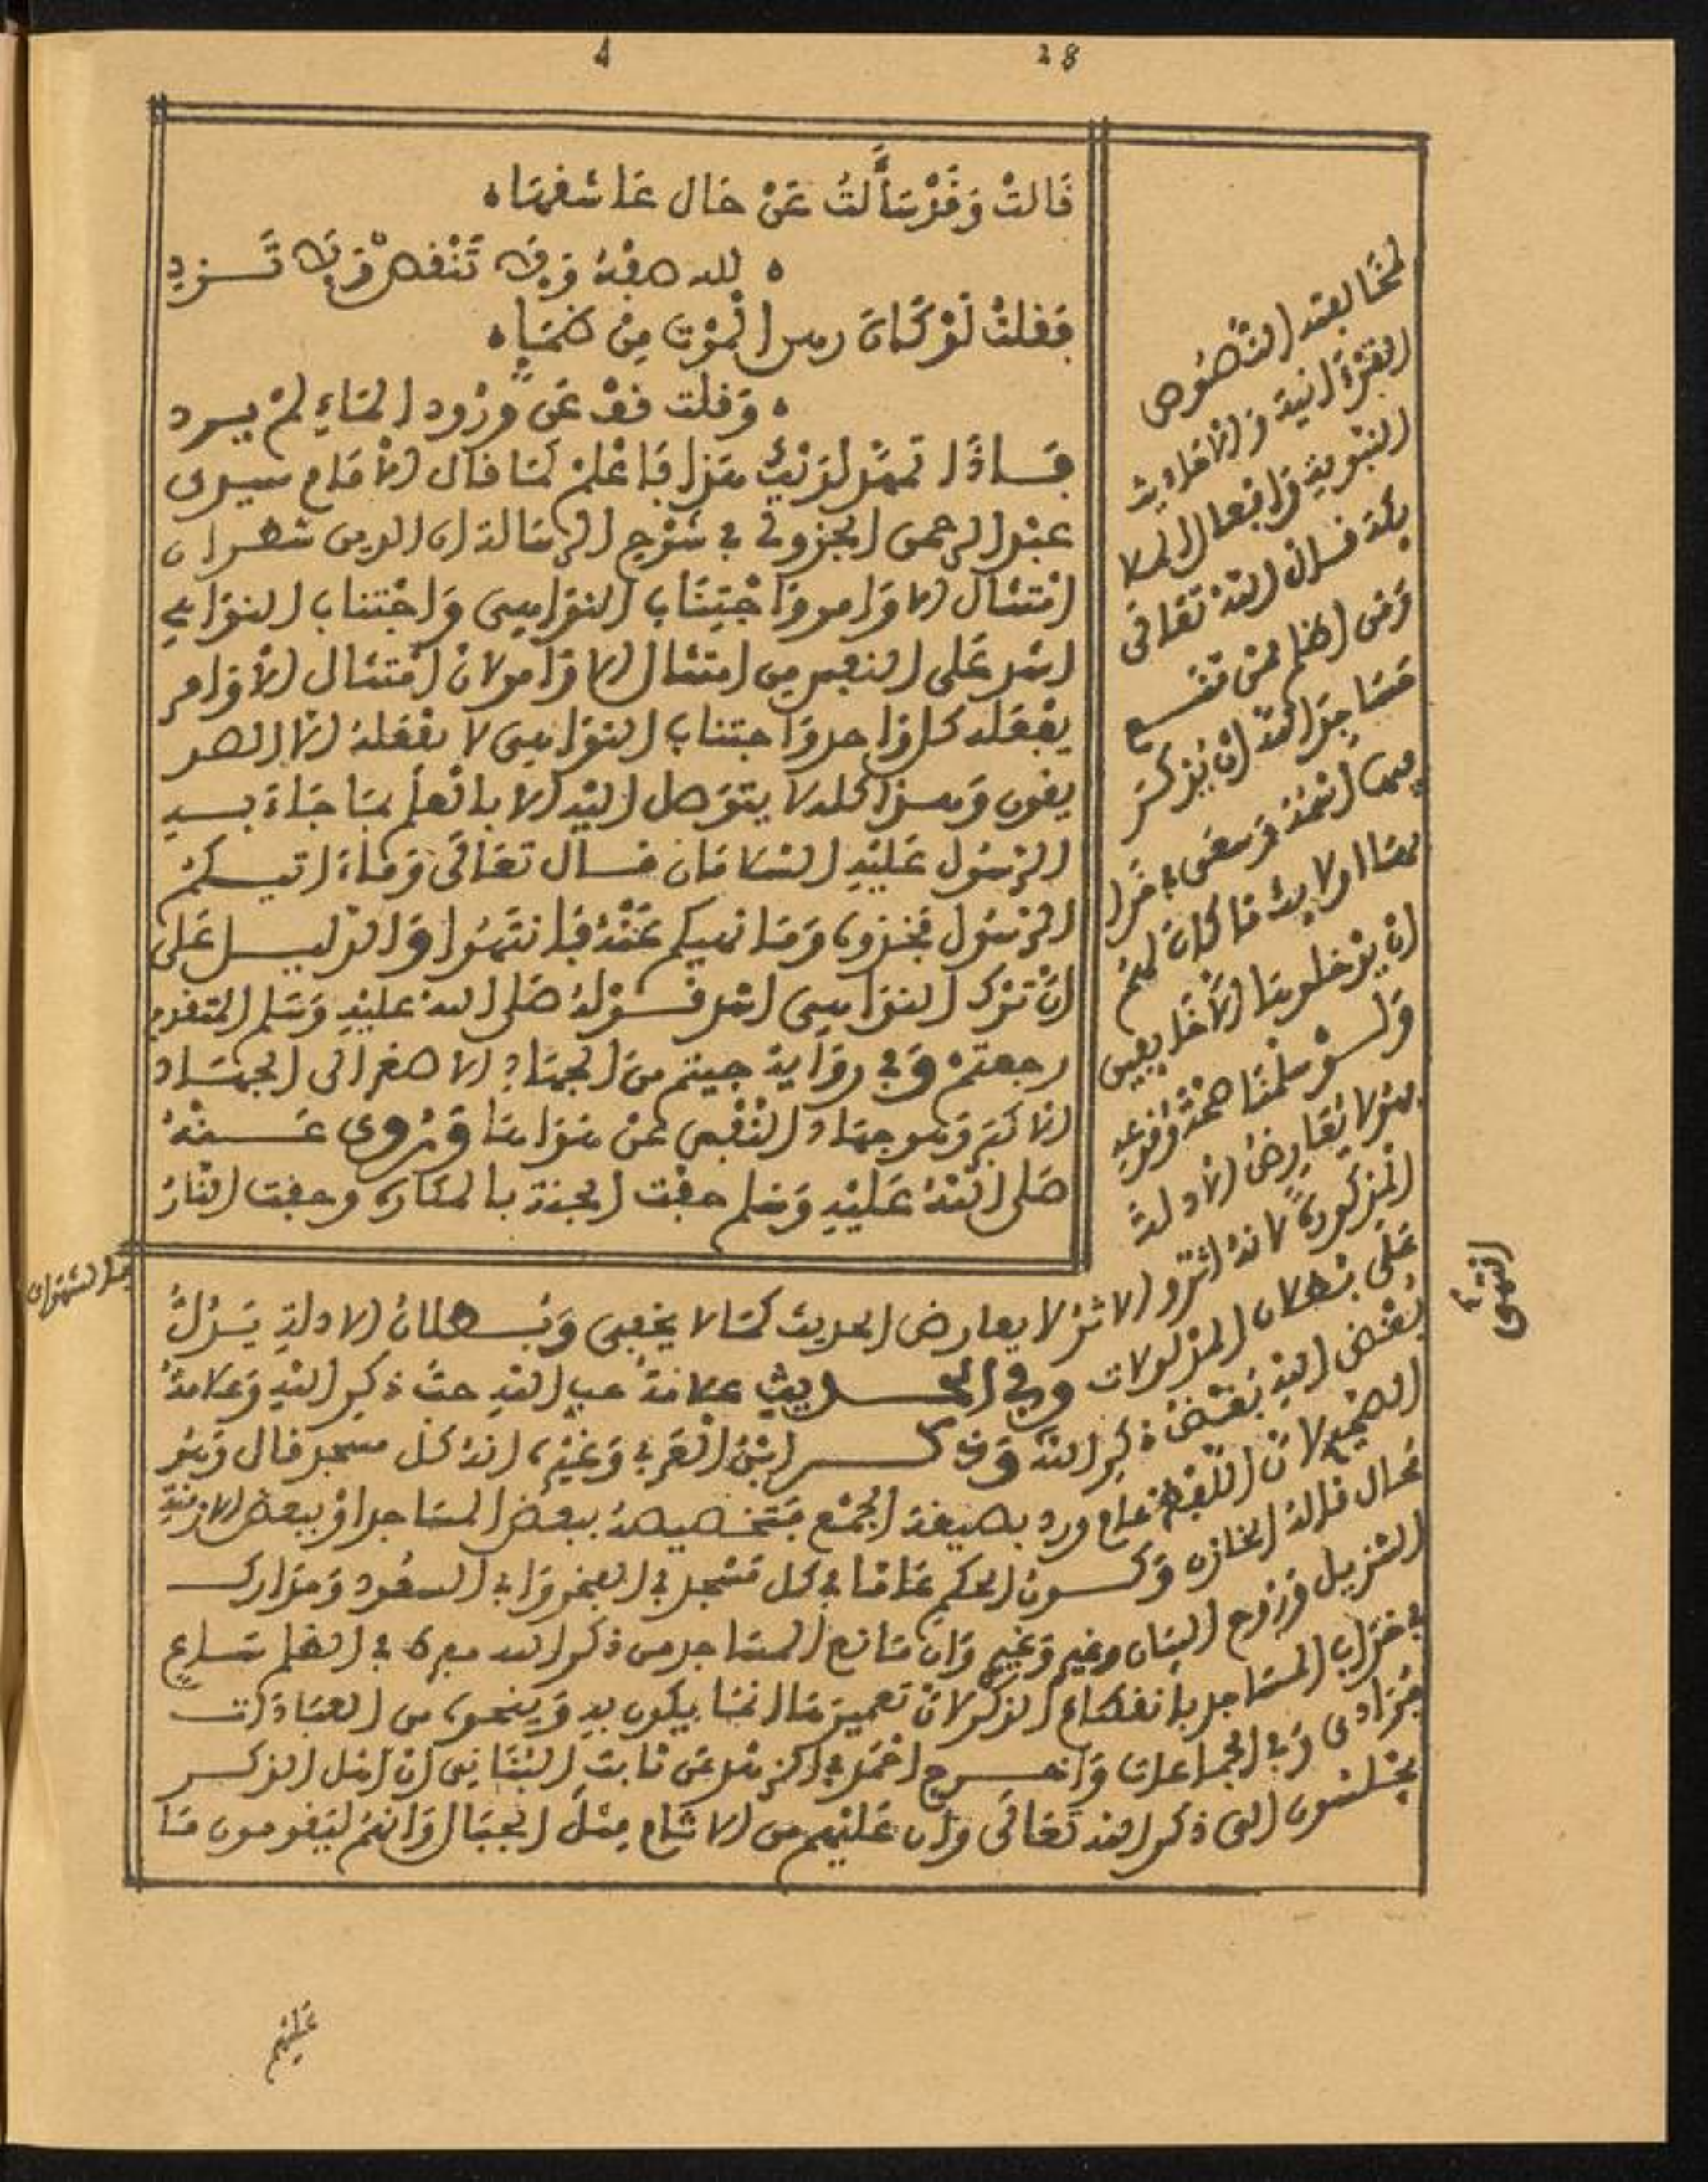 28
قَالتْ وَقَدْ سَأَلتُ عَنْ حَال عَاشقهَا
لله صفهُ وَلا تَنْقص وَلا تَـزد
فَقلتُ لَوْ كَانَ رهن الْمَوْت مِنْ ظمَإٍ
وَقلت قف عَنْ وُرُود المَاءِ لمْ يـرد
فَـاذَا تمهّد لدَيْك هَذا فَاعْلمْ كمَا قال الأمَام سيدى
عبْد الرحمن الجزولى فى شرْح الرسَالة ان الدين شطران
امْتثال الاوَامر وَاجْتِنَاب النوَاهى وَاجْتناب النوَاهى
اشد عَلى النفس من امتثال الاوَامر لان امْتثال الأوَامر
يفْعَله كل وَاحد وَاجتناب النوَاهى لا يفْعَلهُ الا الصد
يقون وَهـذا كله لا يتوَصل اليْه الا بالْعلم بمَا جَاءَ بـه
الرسُول عَليْهِ السلامَ ان قـال تعَالَى وَمَاءَ اتيـكمْ
الرسُول فخذوه وَمَا نهيكم عَنْهُ فَانتهُوا وَالدليـل عَلى
انّ تَرْك النوَاهى اشد قـوْلهُ صَلى الله عليْهِ وَسَلم المتقدم
رجعتمْ وَفى روَاية جيتم منَ الجهَادِ الاصغر الى الجهَـاد
الاكبَر وَهو جهَاد النفْس عَنْ هَوَاهَا وَرُوى عَـنْهُ
صَلى اللهُ عَليْهِ وَسَلم حفّت الجنة بالمكاره وحفت النارُ
بالشهوات
لمخَالفته النُّصُوص
القرْءَانية وَالاحَاديث
النبَوية وَافعال السلا
وَمَن اظلم مِمّن مَنـع
مَسَاجِدَ اللهِ انْ يُذكَرَ
فيهَا اسْمُهُ وَسَعَى فى خَرَا
بهَا اولايك مَا كانَ لهُمْ
انْ يدْخلوهَا الاّ خَايفين
وَلـوْ سلمْنَا صحّة وُقوعهِ
فهو لا يُعَارضُ الادلةَ
المذكورةَ لانهُ اثرٌ والاثرُ لا يعارض الحديث كمَا لا يخفى وَبُـطلانُ الادلةِ يَدُلُّ
عَلى بُطلان المدْلولات وفى الحـديثِ علامَةُ حبّ اللهِ حبُّ ذكر اللهِ وَعلامَةُ
بُغْض اللهِ بُغْضُ ذكر اللهِ وَذكـر ابْنُ الْعَربى وَغيْرُه انهُ كل مسجد قال وَهُو
الصّحيح لانّ اللفظ عام ورد بصيغة الجمْع فتخصيصهُ ببعض المسَاجد اوْ ببعض الازمنَةِ
مُحال قالهُ الخازن وَكـونُ الحكم عَامّا فى كل مَسْجد فى الفخر وَابى السعُود وَمَدَارك
التنزيل وَرُوح البيَان وغيرهِ وَغيرهم وَانّ مَانع المسَاجد من ذكر الله مفرط فى الظلم سَـاعٍ
فى خرَاب المسَاجد بانقطاع الذكر لانّ تعميرَهَا انمَا يكون به وَبنحوه من العبَادَات
فرَادى وَفى الجمَاعات وَاخـرج احْمَد فى الزهْد عَن ثَابت البُنَانى ان اهْل الذكـر
يجْلسُون الى ذكر الله تَعَالى وَان عَليْهم من الاثَام مثْلَ الجبَال وَانهُمْ ليَقومون مَا
انتهى
عَليْهم